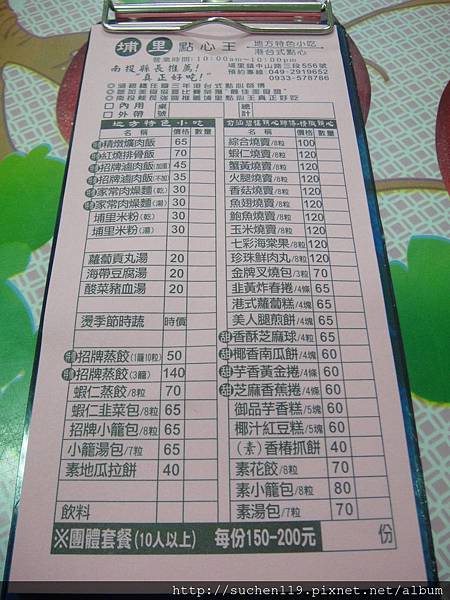 埔里點心王
地方特色小吃
港台式點心
營業時間:10:00am~10:00pm
南投縣長推薦!
"真正好吃!"
埔里鎮中山路三段556號
預約專線:049-2919652
0933-578786
□內用 桌
□外帶 號
總
計
地方特色小吃
名稱 價格 數量
精燉爌肉飯 65
紅燒排骨飯 70
招牌滷肉飯(加蛋) 45
招牌滷肉飯(不加) 35
家常肉燥麵(乾) 30
家常肉燥麵(湯) 30
埔里米粉(乾) 30
埔里米粉(湯) 30
蘿蔔貢丸湯 20
海帶豆腐湯 20
酸菜豬血湯 20
燙季節時蔬 時價
招牌蒸餃(1籠10粒) 50
招牌蒸餃(3籠) 140
蝦仁蒸餃/8粒 70
蝦仁韭菜包/8粒 65
招牌小籠包/8粒 65
小籠湯包/7粒 65
素地瓜拉餅 40
飲料
名稱 價格 數量
綜合燒賣/8粒 100
蝦仁燒賣/8粒 120
蟹黃燒賣/8粒 120
火腿燒賣/8粒 120
香菇燒賣/8粒 120
魚翅燒賣/8粒 120
鮑魚燒賣/8粒 120
玉米燒賣/8粒 120
七彩海棠果/8粒 120
珍珠鮮肉丸/8粒 120
金牌叉燒包/3粒 70
韭黃炸春捲/4條 65
港式蘿蔔糕/4塊 65
美人腿煎餅/4塊 60
甜 香酥芝麻球/4粒 65
甜 椰香南瓜餅/4塊 60
甜 芋香黃金捲/4條 60
甜 芝麻香蕉捲/4條 60
御品芋香糕/5塊 60
椰汁紅豆糕/5塊 60
(素)香椿抓餅 40
素花餃/8粒 70
素小籠包/8粒 80
素湯包/7粒 70
※團體套餐(10人以上) 每份150-200元 份
http://suchen119.pixnet.net/album